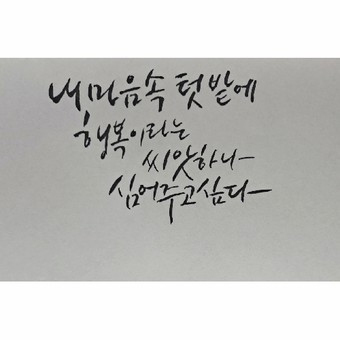 내 마음속 텃밭에
행복이라는
씨앗하나
심어주고싶다